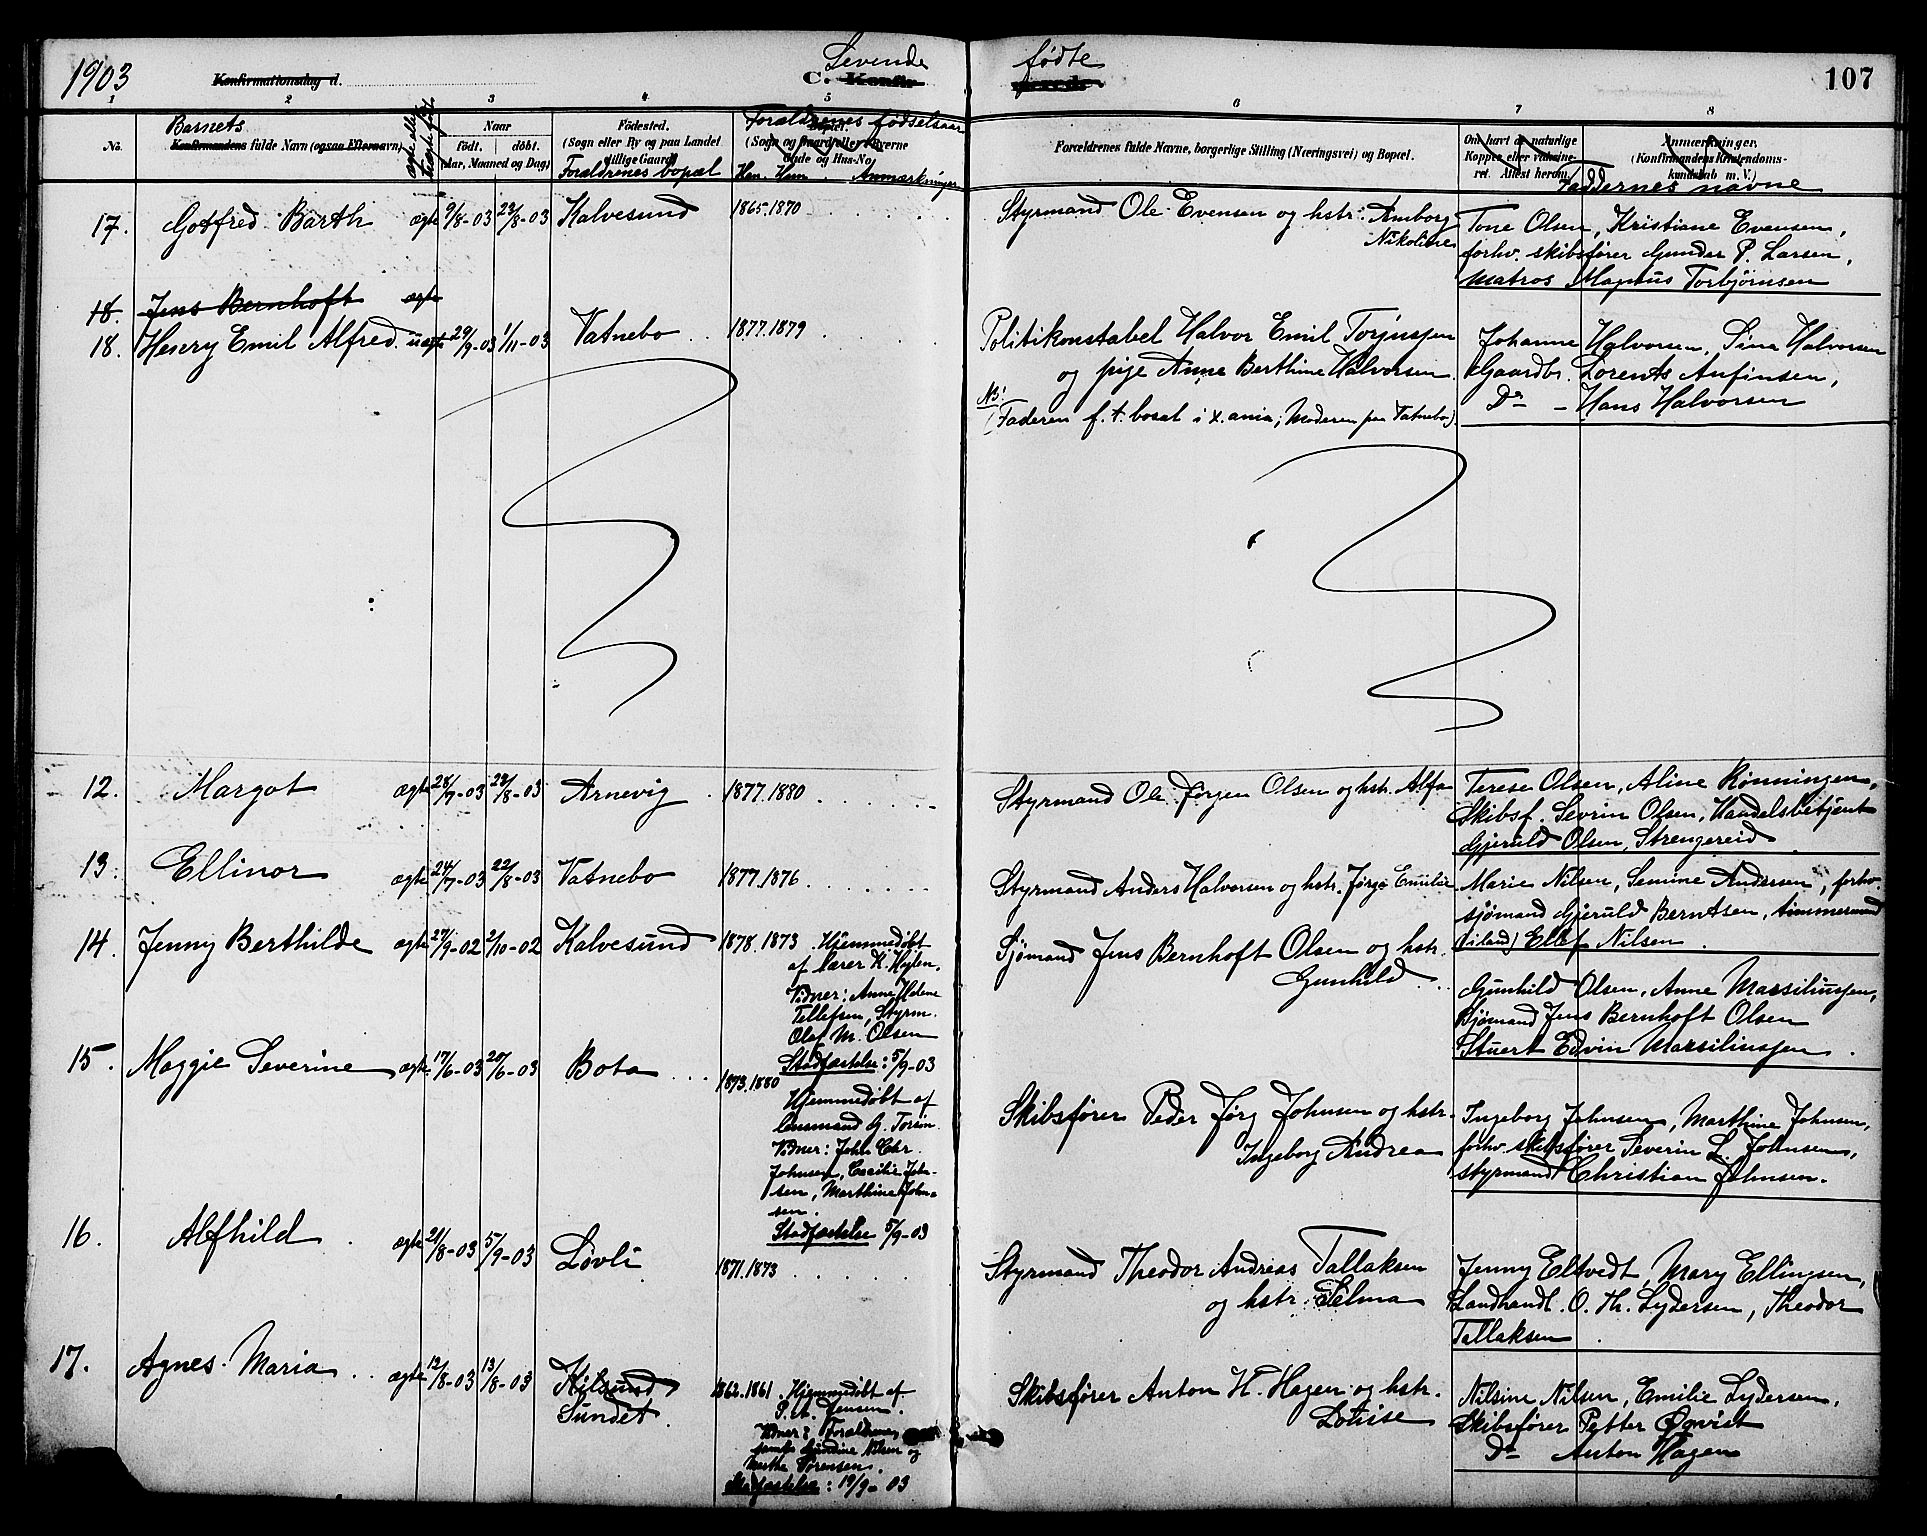 1903
Konfirmationsdag d.
Levende
C. Konfir-
fødte
107
1 2 3 4 5 6 7 8
No.
Barnets
Konfirmandens fulde Navn (ogsaa Efternavn)
Naar
født. døbt.
(Aar, Maaned og Dag)
Fødested.
(Sogn eller By og paa Landet
tillige Gaard)
Forældrenes bopæl
Forældrenes fødselsaar
Han. Hun. Anmærkninger
Forældrenes fulde Navne, borgerlige Stilling (Næringsvei) og Bopæl.
Om havt de naturlige
Kopper eller vaccineret.
Attest herom.
Anmærkninger,
(Konfirmandens Kristendoms-
kundskab m. V.)
Faddernes navne
17. Gotfred Barth ægte 9/8-03 23/8-03 Kalvesund 1865.1870
Styrmand Ole Evensen og hstr: Amborg
Nikoline
Tone Olsen, Kristiane Evensen,
forhv. skibsfører Gunder P. Larsen,
Matros Magnus Torbjørnsen
18. Jens Bernhoft ægte
18. Henry Emil Alfred uægte 29/9-03 1/11-03 Vatnebo 1877.1879
Politikonstabel Halvor Emil Torjussen
og pige Anne Berthine Halvorsen
NB!
(Faderen f. t. bosat i X.ania; Moderen paa Vatnebo)
Johanne Halvorsen, Sina Halvorsen
Gaardbr. Lorents Anfinsen,
Do - Hans Halvorsen
12. Margot ægte 28/7-03 22/8-03 Arnevig 1877.1880
Styrmand Ole Jørgen Olsen og hstr. Alfa
Terese Olsen, Aline Rønningen,
Skibsf. Sevrin Olsen, Handelsbetjent
Gjeruld Olsen, Strengereid
13. Ellinor ægte 24/7-03 22/8-03 Vatnebo 1877.1876
Styrmand Anders Halvorsen og hstr. Jørge Emilie
Marie Nilsen, Semine Andersen, forhv.
sjømand Gjeruld Berntsen, timmermand
(iland) Ellef Nilsen
14. Jenny Berthilde ægte 27/9-02 2/10-02 Kalvesund 1878.1873 Hjemmedøbt
af lærer K. Hoglen.
Vidner: Anne Helene
Tellefsen, Styrm.
Olaf M. Olsen
Stadfæstelse: 5/9-03
Sjømand Jens Bernhoft Olsen og hstr.
Gunhild
Gunhild Olsen, Anne Marsiliussen,
Sjømand Jens Bernhoft Olsen
Stuert Edvin Marsiliussen
15. Maggie Severine ægte 17/6-03 20/6-03 Bota 1873.1880
Hjemmedøbt af
lensmand G. Torsen.
Vidner: John Chr.
Johnsen, Cecilie John-
sen, Marthine John-
sen.
Stadfæstelse 5/9-03
Skibsfører Peder Jørg Johnsen og hstr.
Ingeborg Andrea
Ingeborg Johnsen, Marthine Johnsen,
forhv. skibsfører Severin L. Johnsen,
styrmand Christian Johnsen.
16. Alfhild ægte 21/8-03 5/9-03 Løvli 1871.1873
Styrmand Theodor Andreas Tallaksen
og hstr. Selma
Jenny Eltvedt, Mary Ellingsen,
Landhandl. O. Th. Lydersen, Theodor
Tallaksen
17. Agnes Maria ægte 12/8-03 13/8-03 Kilsund
Sundet
1862.1861 Hjemmedøbt af
S. A. Jensen.
Vidner: Forældrene
samt Gundine Nilsen og
Marthe Sørensen.
Stadfæstelse: 19/9-03
Skibsfører Anton H. Hagen og hstr.
Lovise
Nilsine Nilsen, Emilie Lydersen,
Skibsfører Petter Qvist
Do Anton Hagen